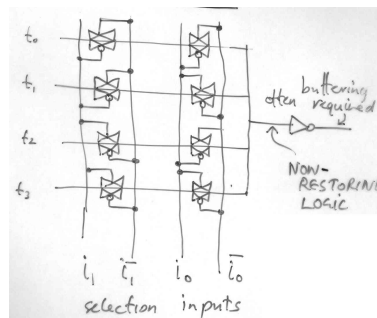 t₀
t₁
t₂
t₃
often buffering required
NON-
RESTORING
LOGIC
i₁ i̅₁ i₀ i̅₀
selection inputs